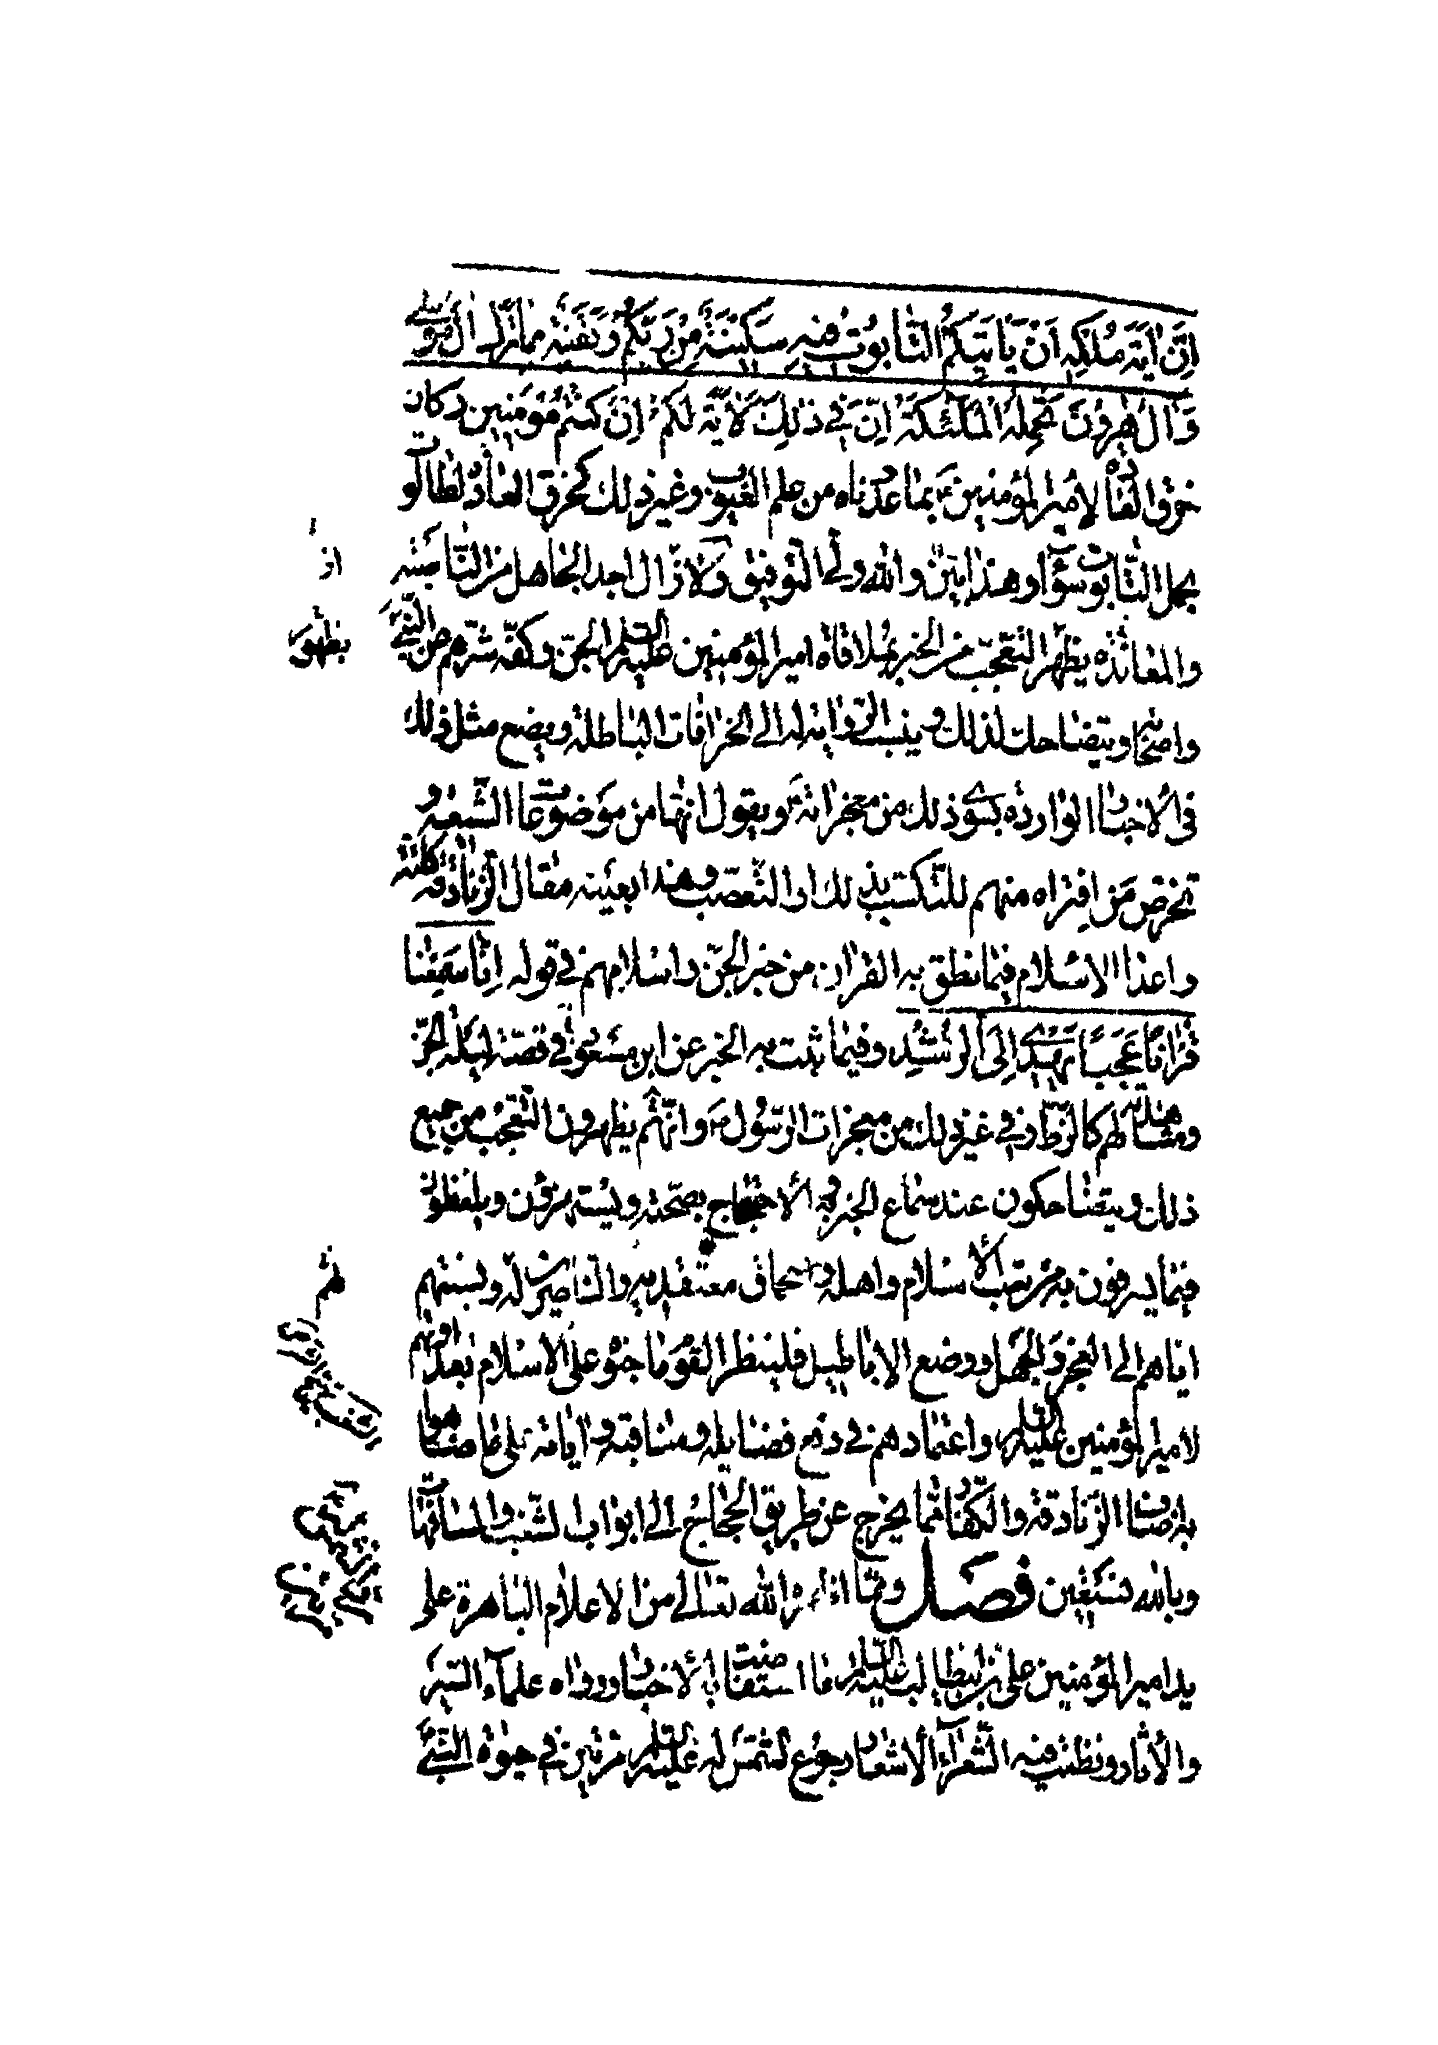 اِنَّ اٰيَةَ مُلْكِهِ اَنْ يَاْتِيَكُمُ التَّابُوتُ فيهِ سَكينَةٌ مِنْ رَبِّكُمْ وَبَقِيَّةٌ مِمَّا تَرَكَ اٰلُ مُوسٰى
وَاٰلُ هٰرُونَ تَحْمِلُهُ الْمَلٰئِكَةُ اِنَّ في ذٰلِكَ لَاٰيَةً لَكُمْ اِنْ كُنْتُمْ مُؤْمِنينَ وكان
خرق العادة لامير المؤمنين ع بما عددناه من علم الغيوب وغير ذلك كخرق العادة لطالوت
بحمل التابوت سواء وهذا بين والله ولي التوفيق ولا ازال اجد الجاهل من الناصبة
والمعاندة يظهر التعجب من الخبر بملاقاة امير المؤمنين عليه السلم الجن وكفه شرهم عن النبي ص
واصحابه ويتضاحك لذلك وينسب الرواية له الى الخرافات الباطلة ويصنع مثل ذلك
في الاخبار الواردة بسوى ذلك من معجزاته ع ويقول انها من موضوعات الشيعة و
تخرص من افتراه منهم للتكسب بذلك او التعصب وهذا بعينه مقال الزنادقة كافة
واعداء الاسلام فيما نطق به القران من خبر الجن واسلامهم في قوله اِنَّا سَمِعْنَا
قُرْاٰنًا عَجَبًا يَهْدي اِلَى الرُّشْدِ وفيما ثبت به الخبر عن ابن مسعود في قصته ليلة الجن
ومشاهدته لهم كالزط وفي غير ذلك من معجزات الرسول ص وانهم يظهرون التعجب من جميع
ذلك ويتضاحكون عند سماع الخبر به والاحتجاج بصحته ويستهزؤن ويلغطون
فيما يسرفون به من سب الاسلام واهله واستحماق معتقديه والناصرين له ونسبتهم
اياهم الى العجز والجهل ووضع الاباطيل فلينظر القوم ما جنوه على الاسلام بعداوتهم
لامير المؤمنين عليه السلم واعتمادهم في دفع فضايله ومناقبه واياته على ما ضاهوا
به اصناف الزنادقة والكفار مما يخرج عن طريق الحجاج الى ابواب الشغب والمسافهات
وبالله نستعين فصل ومما اظهره الله تعالى من الاعلام الباهرة على
يد امير المؤمنين علي بن ابيطالب عليه السلم ما استفاضت به الاخبار ورواه علماء السير
والاثار ونظمت فيه الشعراء الاشعار رجوع الشمس له عليه السلم مرتين في حيوة النبي
از
بظهور
لهم